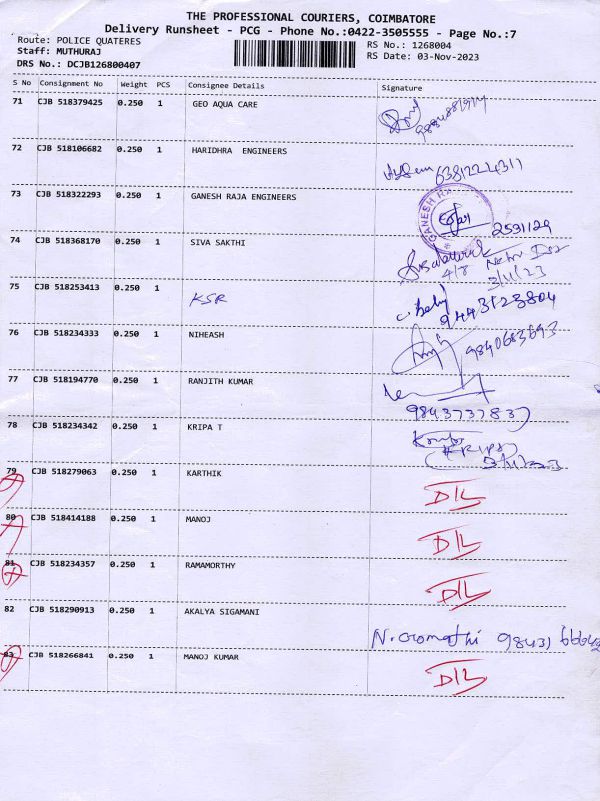 THE PROFESSIONAL COURIERS, COIMBATORE
Delivery Runsheet - PCG - Phone No.:0422-3505555 - Page No.:7
Route: POLICE QUATERES
RS No.: 1268004
Staff: MUTHURAJ
RS Date: 03-Nov-2023
DRS No.: DCJB126800407
S No Consignment No Weight PCS Consignee Details Signature
71 CJB 518379425 0.250 1 GEO AQUA CARE
72 CJB 518106682 0.250 1 HARIDHRA ENGINEERS
6381224311
73 CJB 518322293 0.250 1 GANESH RAJA ENGINEERS
GANESH
2591129
74 CJB 518368170 0.250 1 SIVA SAKTHI
4/8
3/11/23
75 CJB 518253413 0.250 1 KSR
9443523804
76 CJB 518234333 0.250 1 NIHEASH
9840683693
77 CJB 518194770 0.250 1 RANJITH KUMAR
9843737837
78 CJB 518234342 0.250 1 KRIPA T
(KRIPA)
3/11/2023
79 CJB 518279063 0.250 1 KARTHIK D/L
80 CJB 518414188 0.250 1 MANOJ D/L
81 CJB 518234357 0.250 1 RAMAMORTHY D/L
82 CJB 518290913 0.250 1 AKALYA SIGAMANI
N. Gomathi
83 CJB 518266841 0.250 1 MANOJ KUMAR D/L